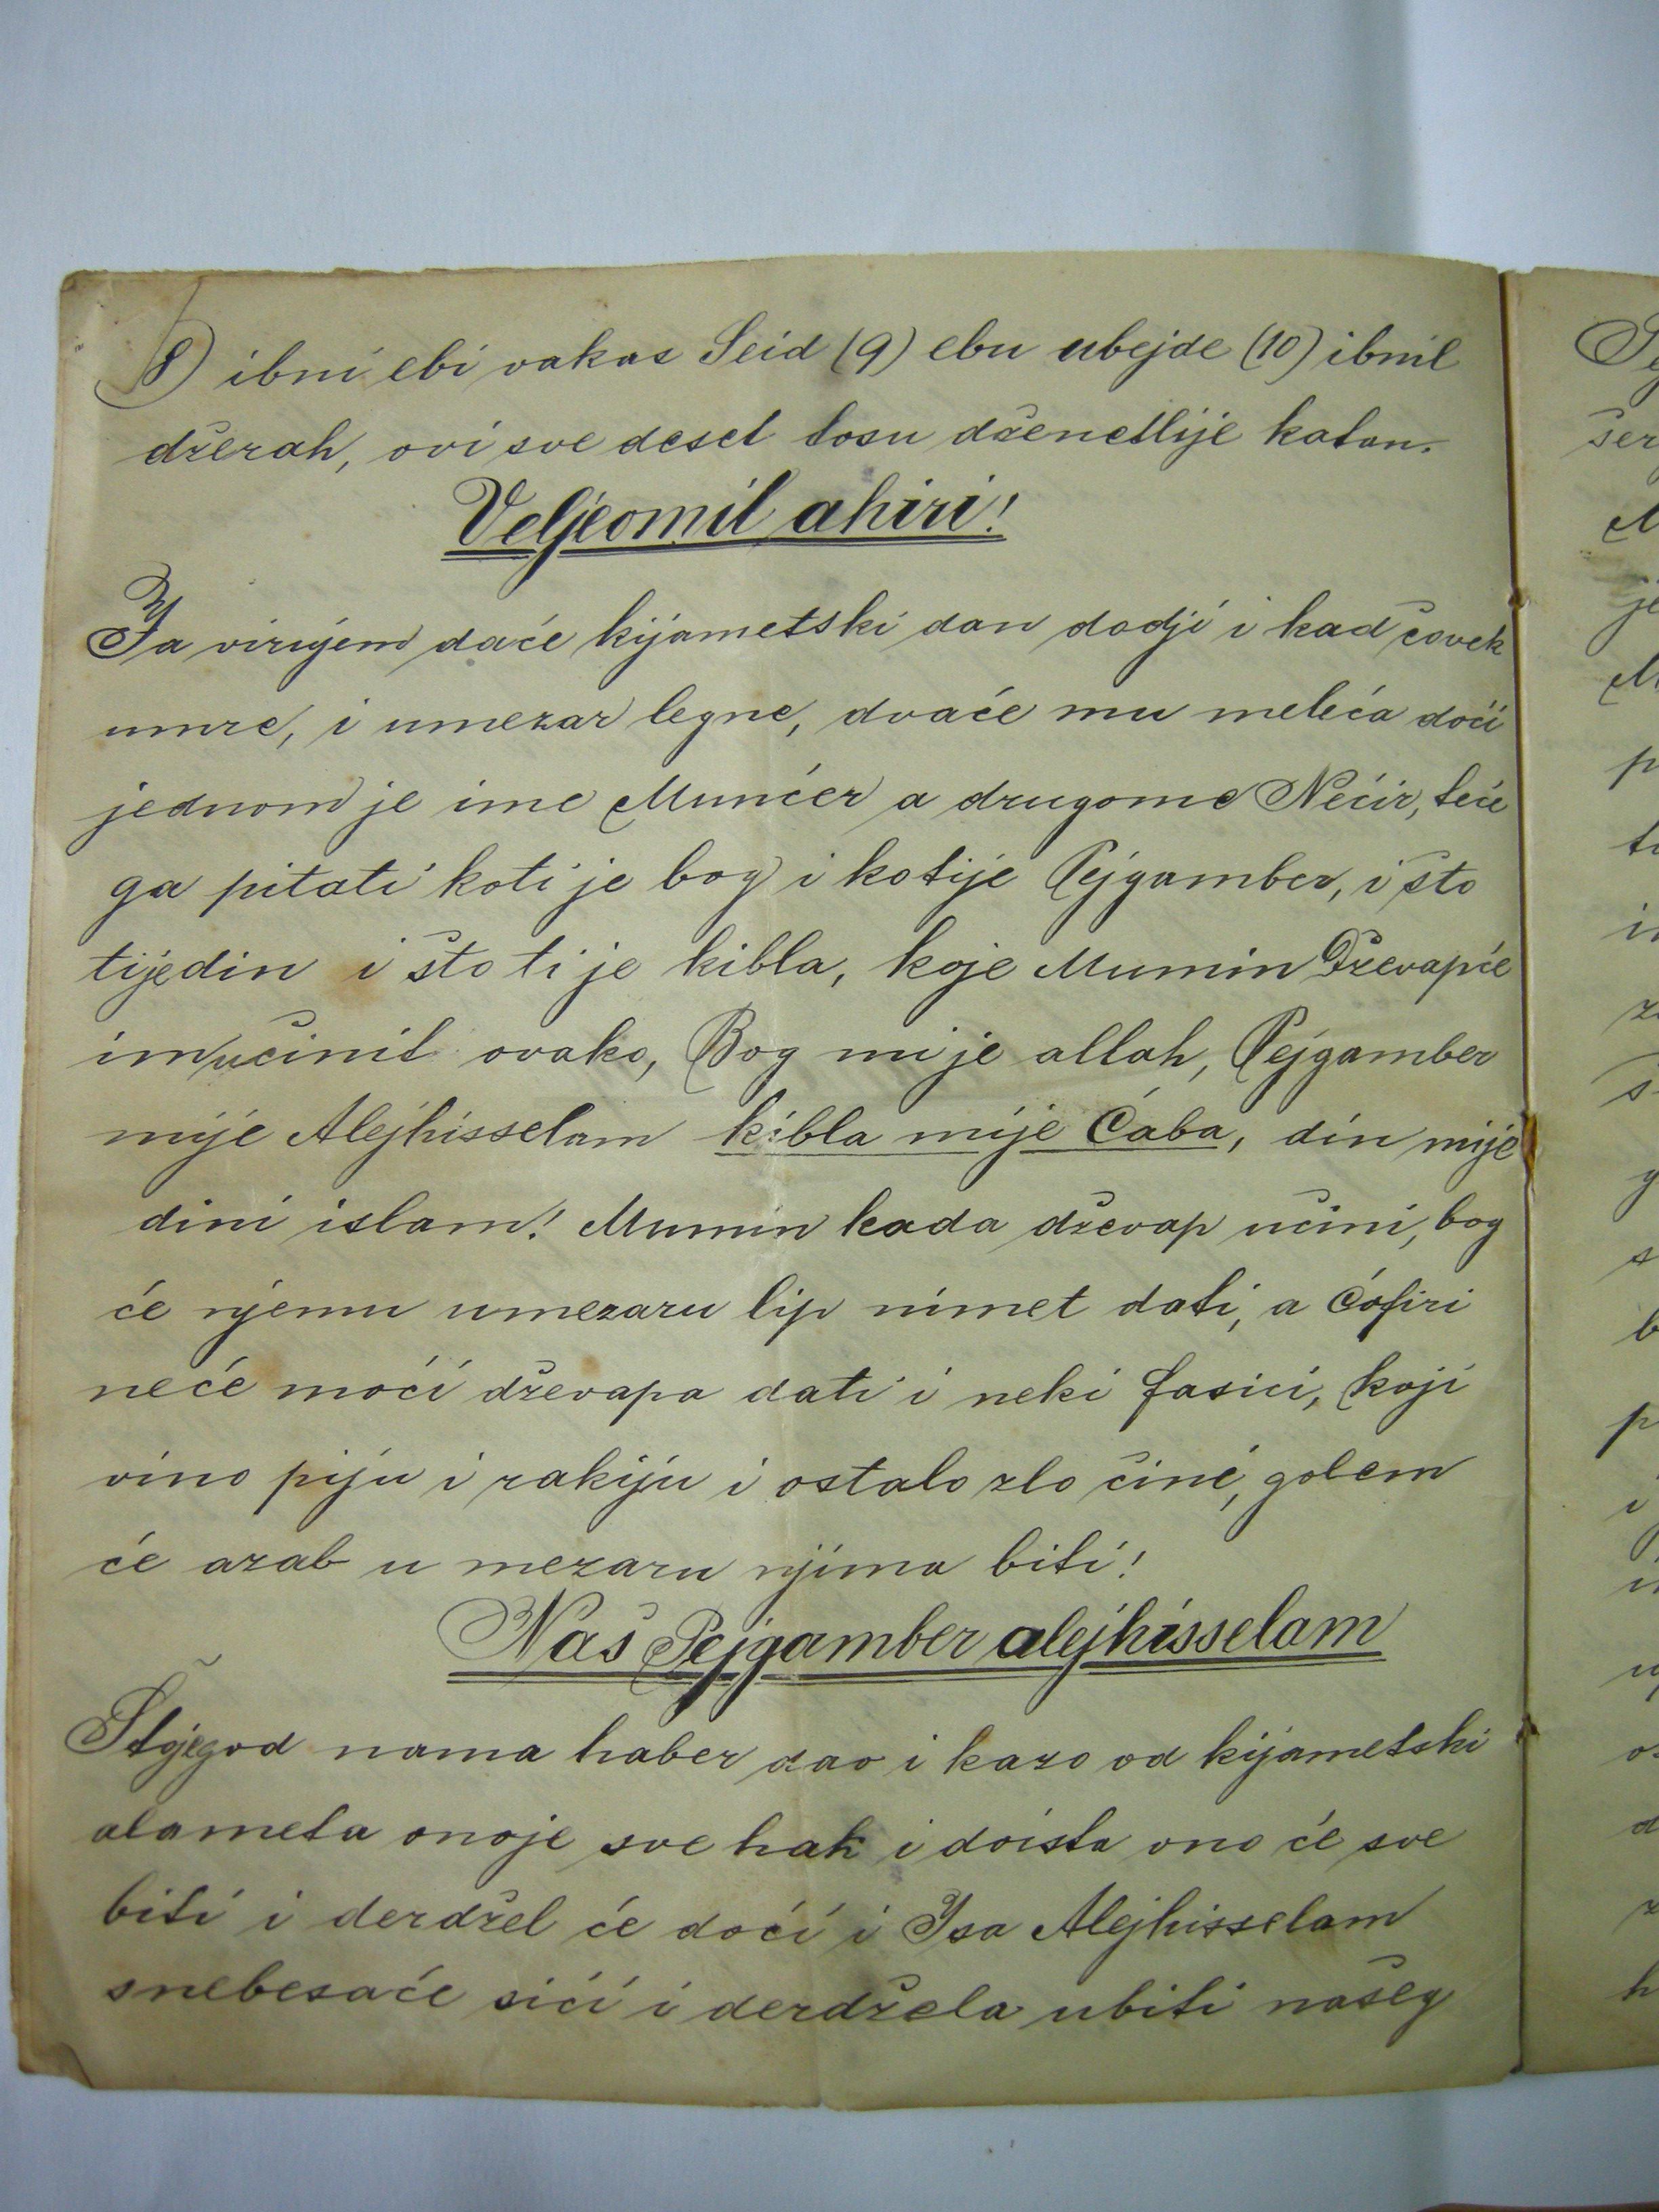 8) ibni ebi vakas Seid (9) ebu ubejde (10) ibnil
džerah, ovi sve deset tosu dženetlije katan.
Veljeomil ahiri!
Ja virujem daće kijametski dan dodji i kad čovek
umre, i umezar legne, dvaće mu meleća doći
jednom je ime Munćer a drugome Nećir, teće
ga pitati koti je bog i kotije Pejgamber, i što
tijedin i što ti je kibla, koje Mumin Dževapće
imučinit ovako, Bog mi je allah, Pejgamber
mije Alejhisselam kibla mije Ćaba, din mije
dini islam! Mumin kada dževap učini, bog
će njemu umezaru lip nimet dati, a Ćafiri
neće moći dževapa dati i neki fasici, koji
vino piju i rakiju i ostalo zlo čine, golem
će azab u mezaru njima biti!
Naš Pejgamber alejhisselam
Štojegod nama haber dao i kazo od kijametski
alameta onoje sve hak i doista ono će sve
biti i derdžel će doći i Isa Alejhisselam
snebesaće sići i derdžela ubiti našeg